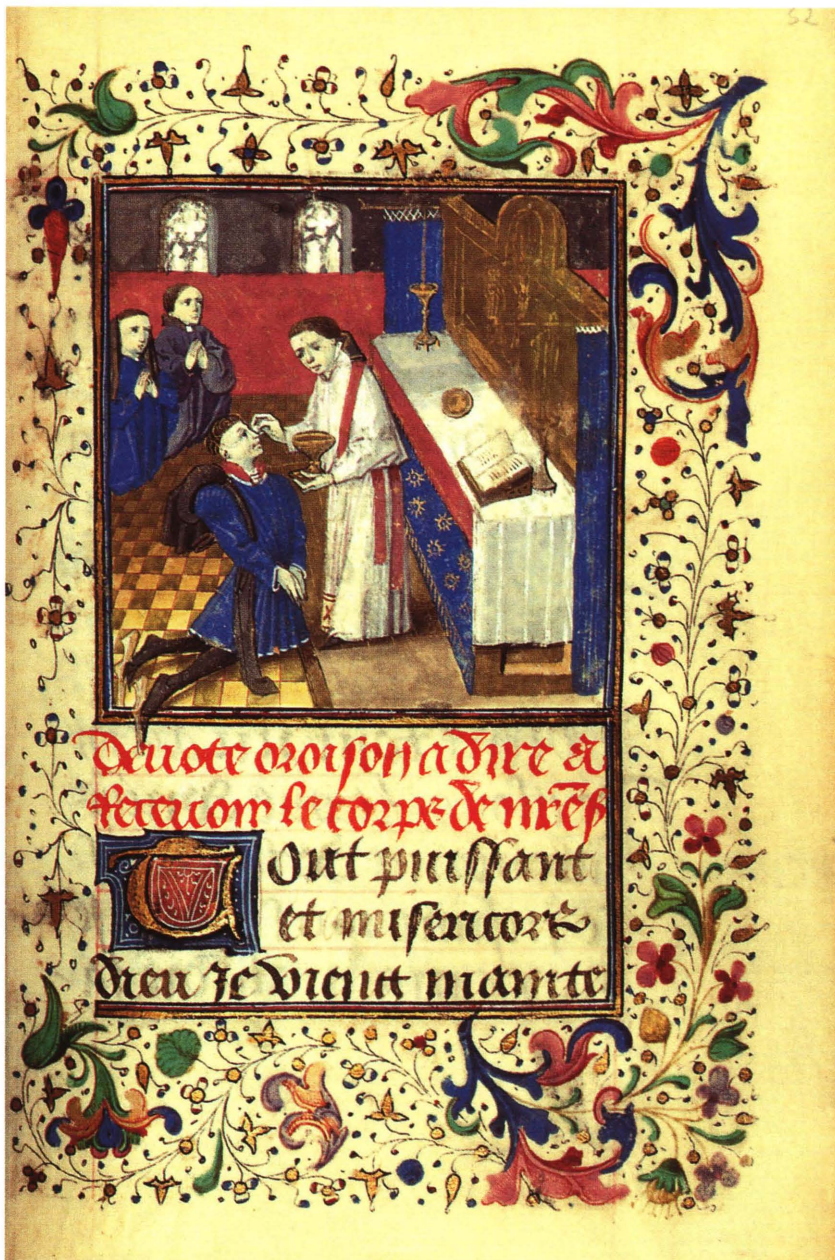 52
Deuote oroison a dire a
Receuoir le corps de nr̃e s
Tout puissant
et misericors
dieu Je vieng mainte